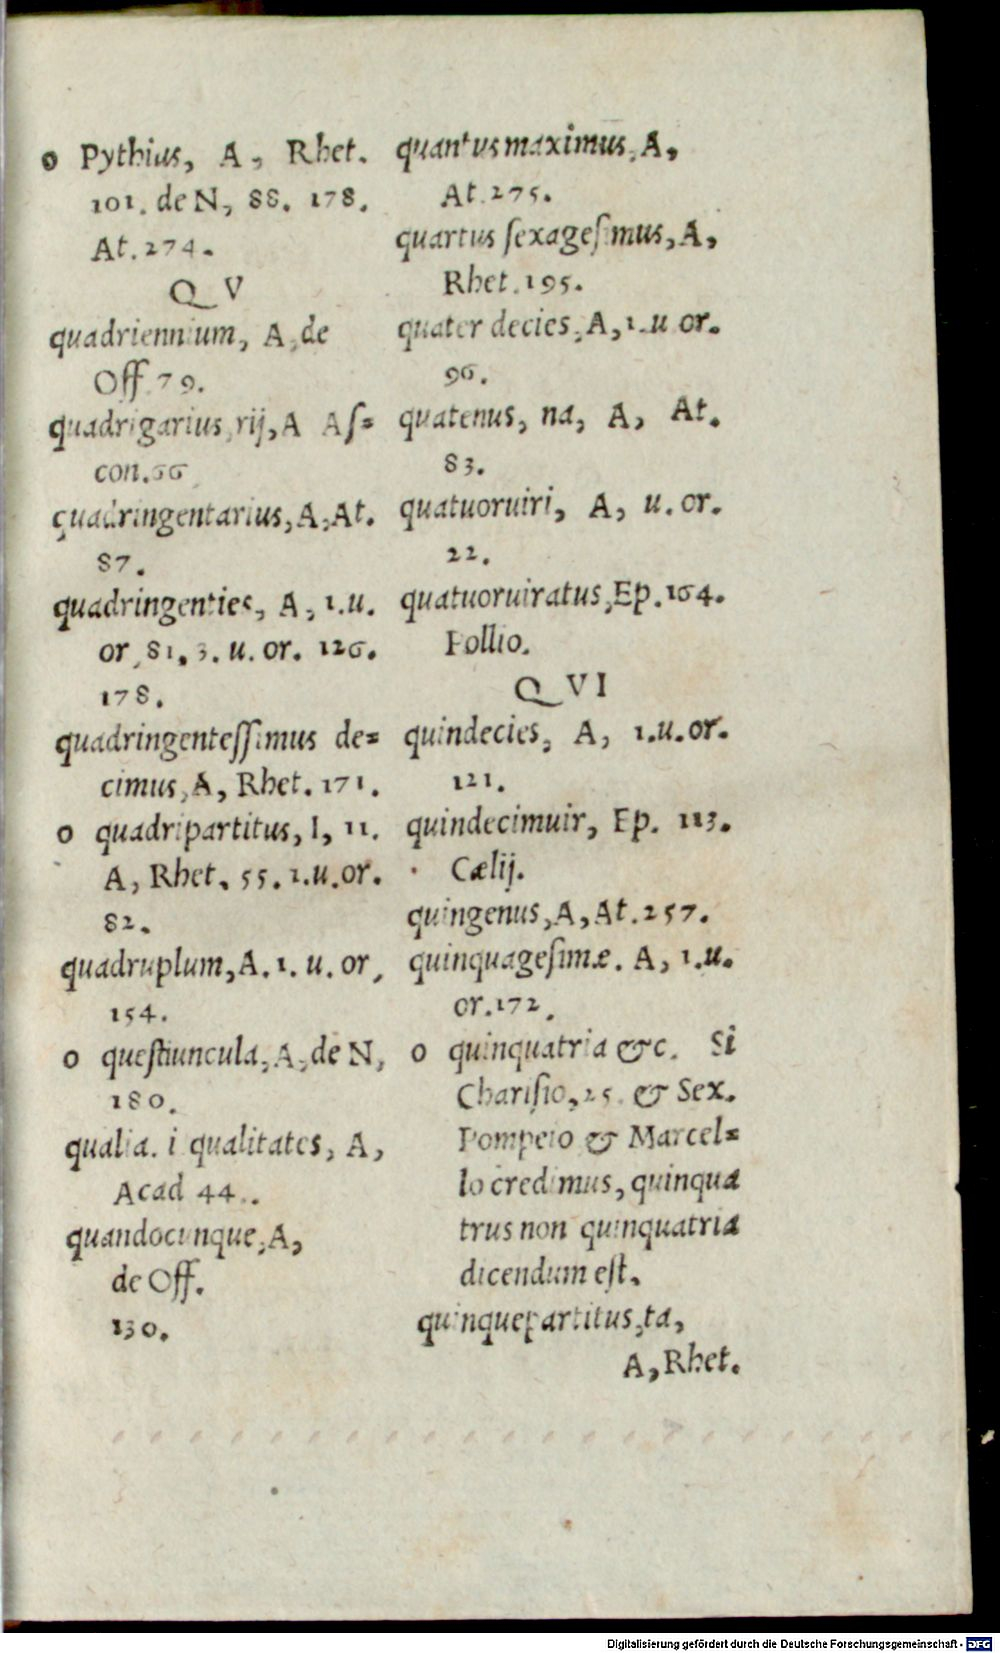 o Pythius, A, Rhet.
101. de N, 88. 178.
At. 274.
Q V
quadriennium, A, de
Off. 79.
quadrigarius, rij, A Aſ=
con. 66
quadringentarius, A, At.
87.
quadringenties, A, 1. u.
or, 81, 3. u. or. 126.
178.
quadringenteſſimus de=
cimus, A, Rhet. 171.
o quadripartitus, I, 11.
A, Rhet. 55. 1. u. or.
82.
quadruplum, A. 1. u. or,
154.
o queſtiuncula, A, de N,
180.
qualia. i qualitates, A,
Acad 44.
quandocunque, A,
de Off.
130.
quantus maximus, A,
At. 275.
quartus ſexageſimus, A,
Rhet. 195.
quater decies, A, 1. u or.
96.
quatenus, na, A, At.
83.
quatuoruiri, A, u. or.
22.
quatuoruiratus, Ep. 164.
Pollio.
Q VI
quindecies, A, 1. u. or.
121.
quindecimuir, Ep. 113.
Cælij.
quingenus, A, At. 257.
quinquageſimæ. A, 1. u.
or. 172.
o quinquatria &c. Si
Chariſio, 25. & Sex.
Pompeio & Marcel=
lo credimus, quinqua
trus non quinquatria
dicendum eſt.
quinquepartitus, ta,
A, Rhet.
Digitalisierung gefördert durch die Deutsche Forschungsgemeinschaft - DFG